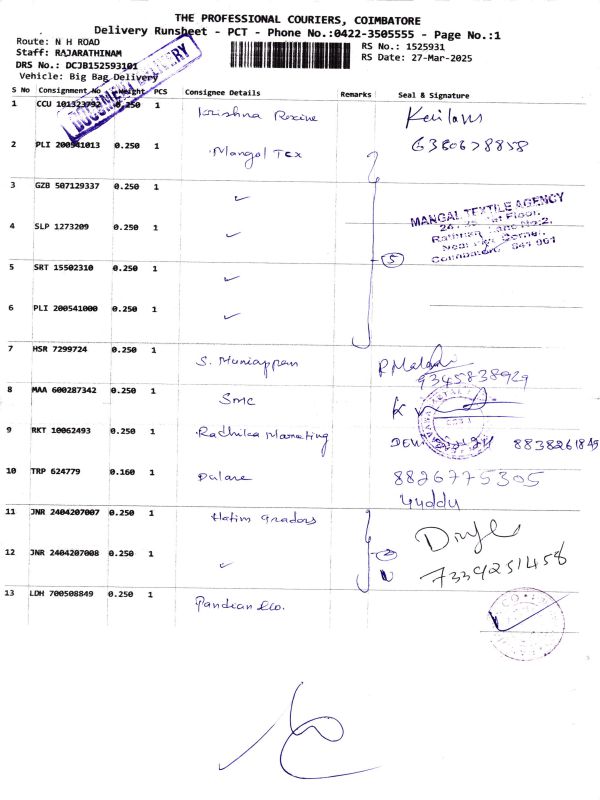 THE PROFESSIONAL COURIERS, COIMBATORE
Delivery Runsheet - PCT - Phone No.:0422-3505555 - Page No.:1
Route: N H ROAD
RS No.: 1525931
Staff: RAJARATHINAM
RS Date: 27-Mar-2025
DRS No.: DCJB152593101
Vehicle: Big Bag Delivery
DOCUMENT DELIVERY
S No Consignment No Weight PCS Consignee Details Remarks Seal & Signature
1 CCU 101323792 0.250 1 Krishna Kailans
6380678858
2 PLI 200541013 0.250 1 Mangal Tex
3 GZB 507129337 0.250 1 ✓
MANGAL TEXTILE AGENCY
1st Floor,
4 SLP 1273209 0.250 1 ✓
No:2,
Corner,
Coimbatore 641 001
5 SRT 15502310 0.250 1 ✓ 5
6 PLI 200541000 0.250 1 ✓
7 HSR 7299724 0.250 1 S. Muniappan
9345838929
8 MAA 600287342 0.250 1 SMC K
9 RKT 10062493 0.250 1 Radhika Marketing 8838261849
10 TRP 624779 0.160 1 8826775305
11 JNR 2404207007 0.250 1 Hatim
12 JNR 2404207008 0.250 1 ✓ 2
7339251458
13 LDH 700508849 0.250 1 Pandian &Co.